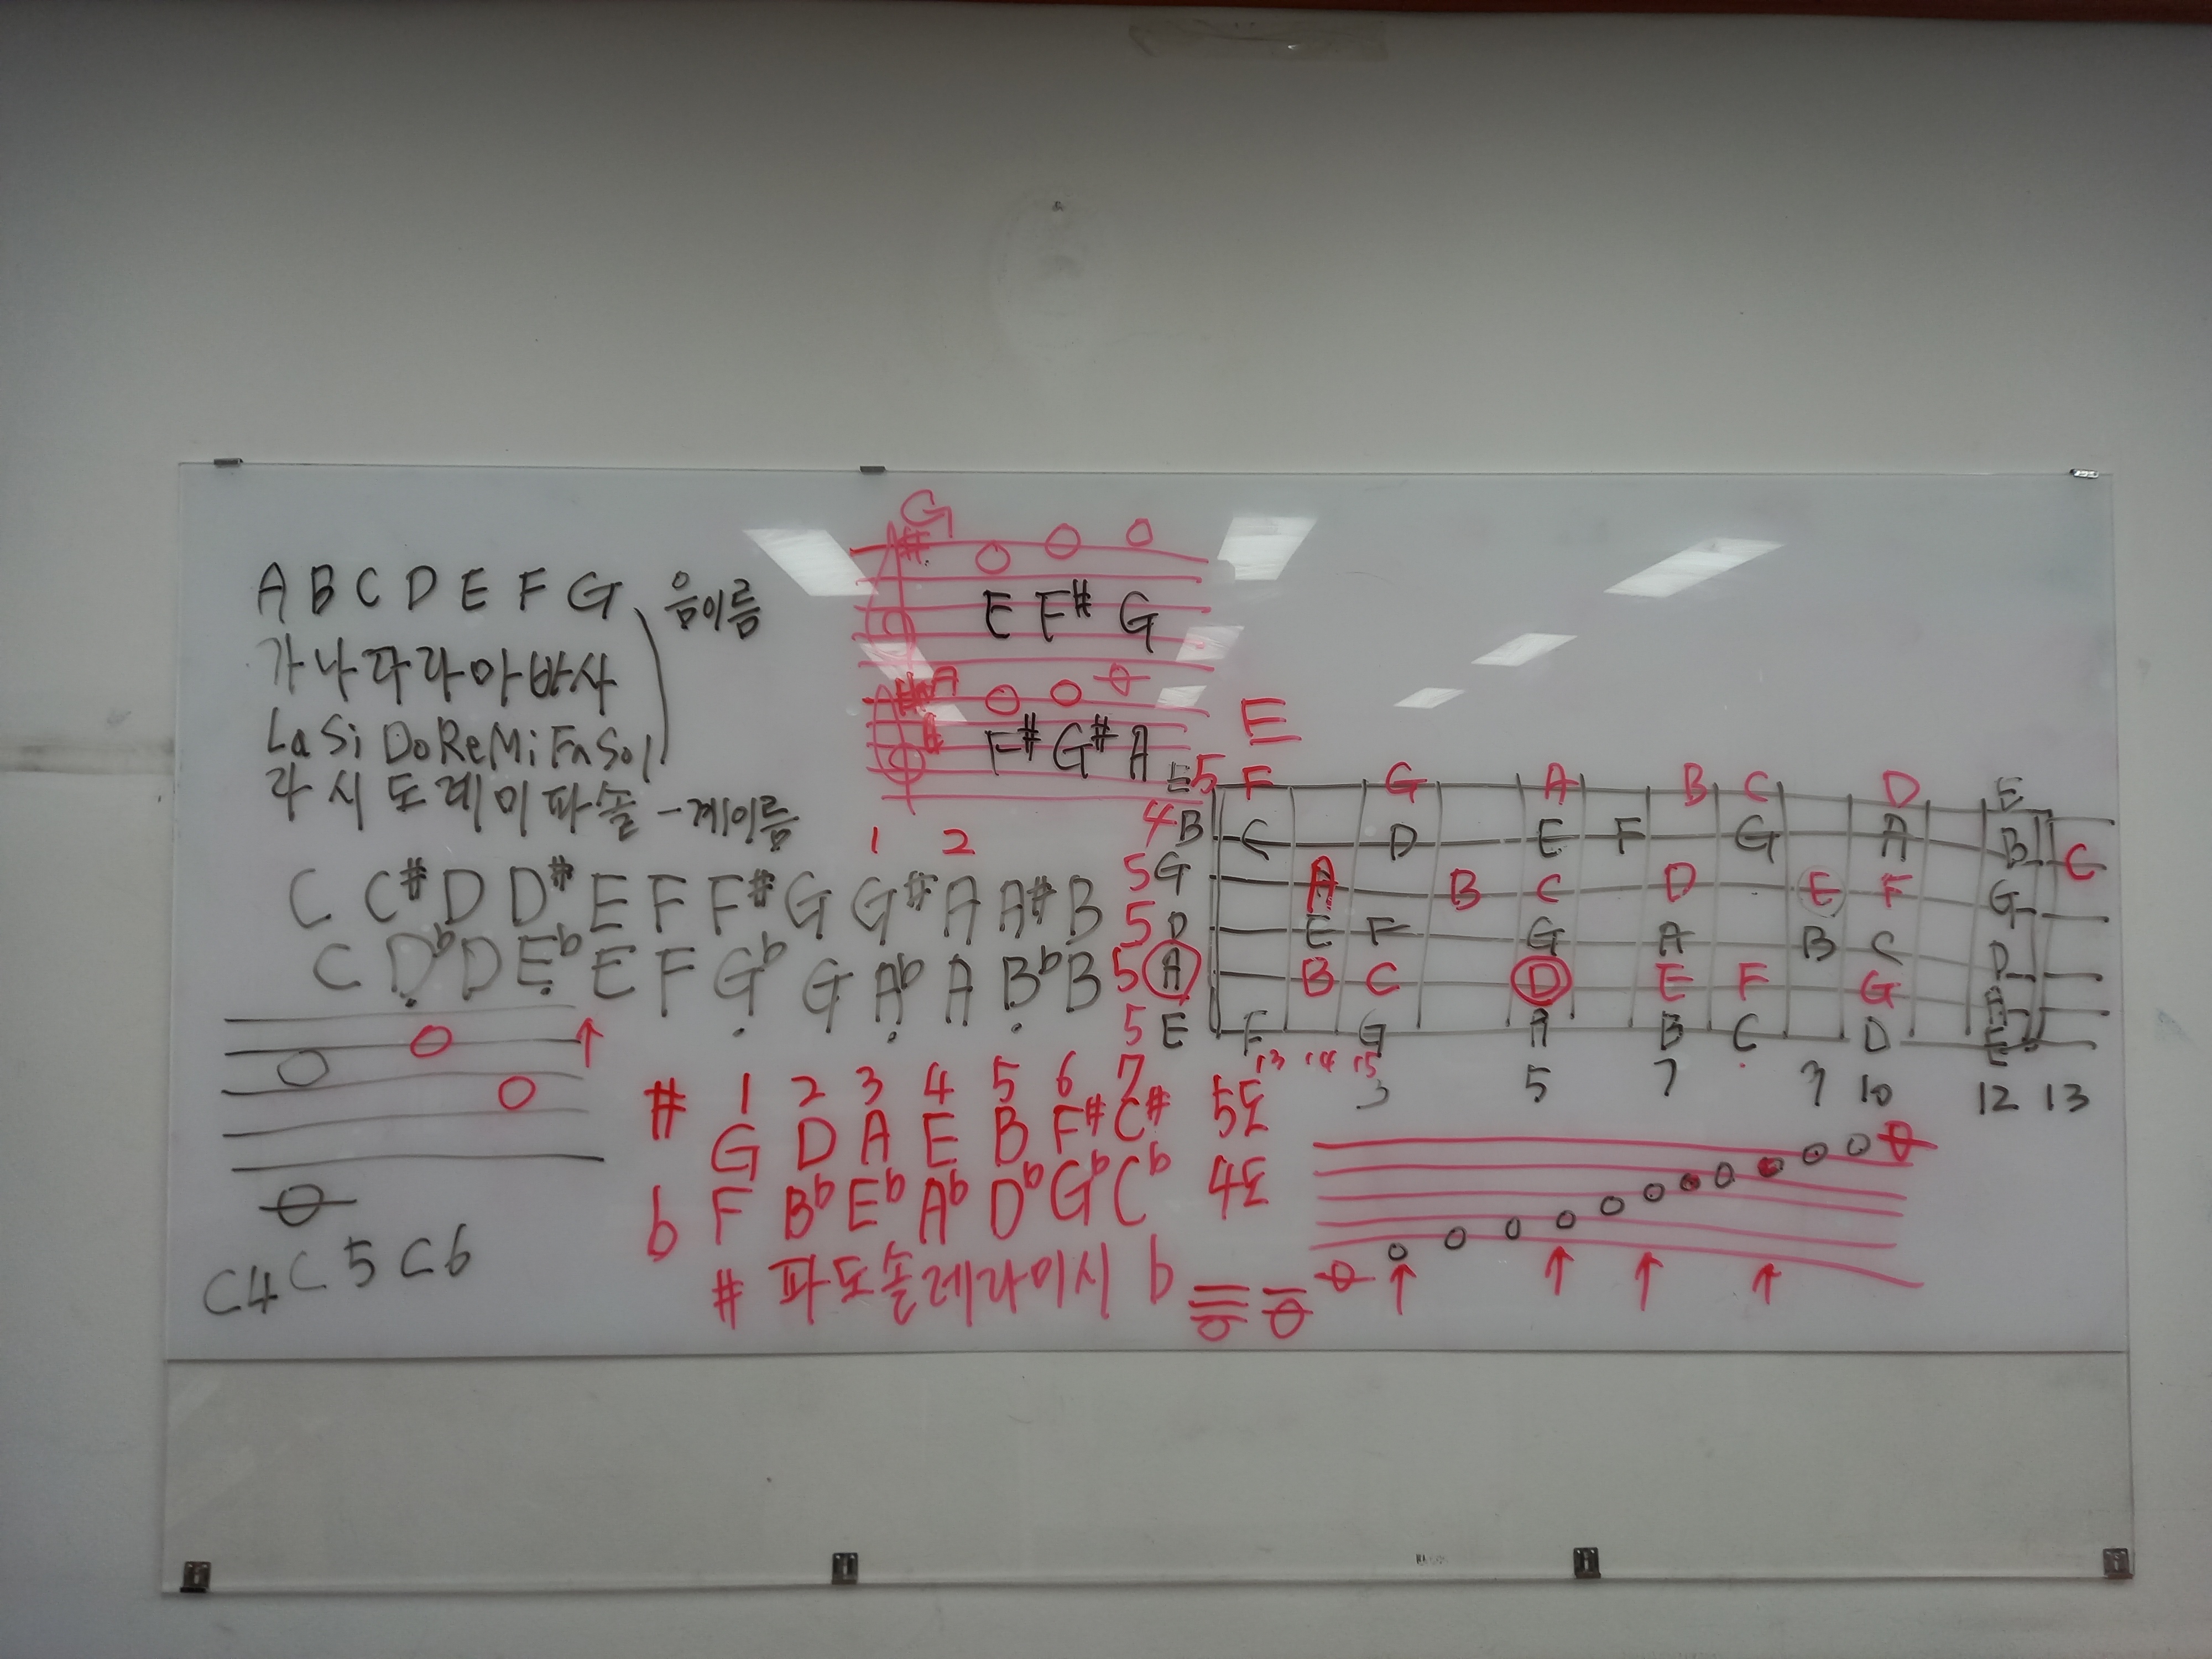 A B C D E F G 음이름
가 나 다 라 마 바 사
La Si Do Re Mi Fa Sol
라 시 도 레 미 파 솔 - 계이름
C C# D D# E F F# G G# A A# B
C Db D Eb E F Gb G Ab A Bb B
C4 C5 C6
G
#
E F# G
# A
#
F# G# A
1 2
# 1 2 3 4 5 6 7
G D A E B F# C# 5도
b F Bb Eb Ab Db Gb Cb 4도
# 파 도 솔 레 라 미 시 b
E
E 5 F G A B C D E
4 B C D E F G A B C
5 G A B C D E F G
5 D E F G A B C D
5 A B C D E F G A
5 E F G A B C D E
13 14 15
3 5 7 9 10 12 13